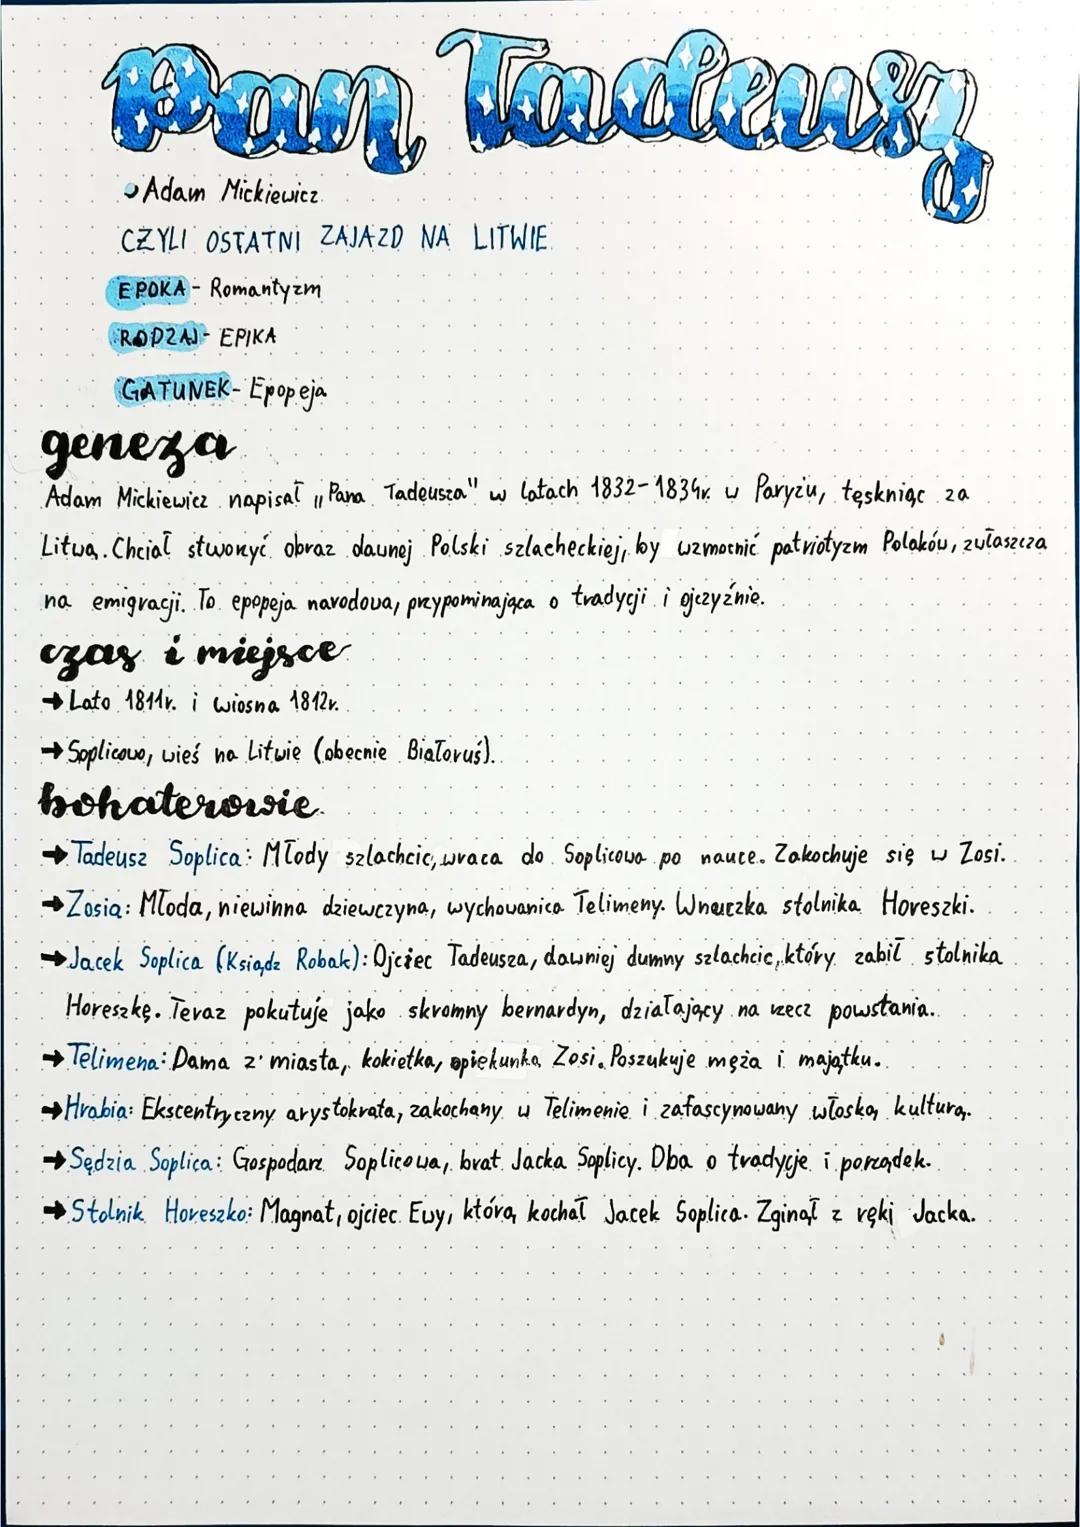 Pan Tadeusz
Adam Mickiewicz
CZYLI OSTATNI ZAJAZD NA LITWIE
EPOKA - Romantyzm
RODZAJ - EPIKA
GATUNEK - Epopeja
geneza
Adam Mickiewicz napisał „Pana Tadeusza" w latach 1832-1834r. w Paryżu, tęskniąc za
Litwą. Chciał stworzyć obraz dawnej Polski szlacheckiej, by wzmocnić patriotyzm Polaków, zwłaszcza
na emigracji. To epopeja narodowa, przypominająca o tradycji i ojczyźnie.
czas i miejsce
→ Lato 1811r. i wiosna 1812r.
→ Soplicowo, wieś na Litwie (obecnie Białoruś).
bohaterowie
→ Tadeusz Soplica: Młody szlachcic, wraca do Soplicowa po nauce. Zakochuje się w Zosi.
→ Zosia: Młoda, niewinna dziewczyna, wychowanica Telimeny. Wnuczka stolnika Horeszki.
→ Jacek Soplica (Ksiądz Robak): Ojciec Tadeusza, dawniej dumny szlachcic, który zabił stolnika
Horeszkę. Teraz pokutuje jako skromny bernardyn, działający na rzecz powstania.
→ Telimena: Dama z miasta, kokietka, opiekunka Zosi. Poszukuje męża i majątku.
→ Hrabia: Ekscentryczny arystokrata, zakochany w Telimenie i zafascynowany włoską kulturą.
→ Sędzia Soplica: Gospodarz Soplicowa, brat Jacka Soplicy. Dba o tradycje i porządek.
→ Stolnik Horeszko: Magnat, ojciec Ewy, którą kochał Jacek Soplica. Zginął z ręki Jacka.